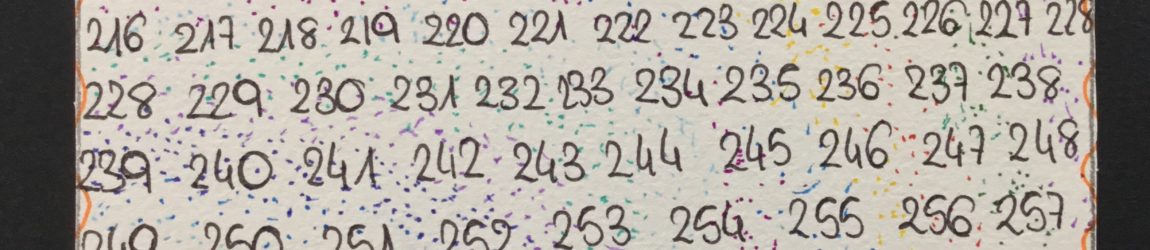 216 217 218 219 220 221 222 223 224 225 226 227 228
228 229 230 231 232 233 234 235 236 237 238
239 240 241 242 243 244 245 246 247 248
249 250 251 252 253 254 255 256 257